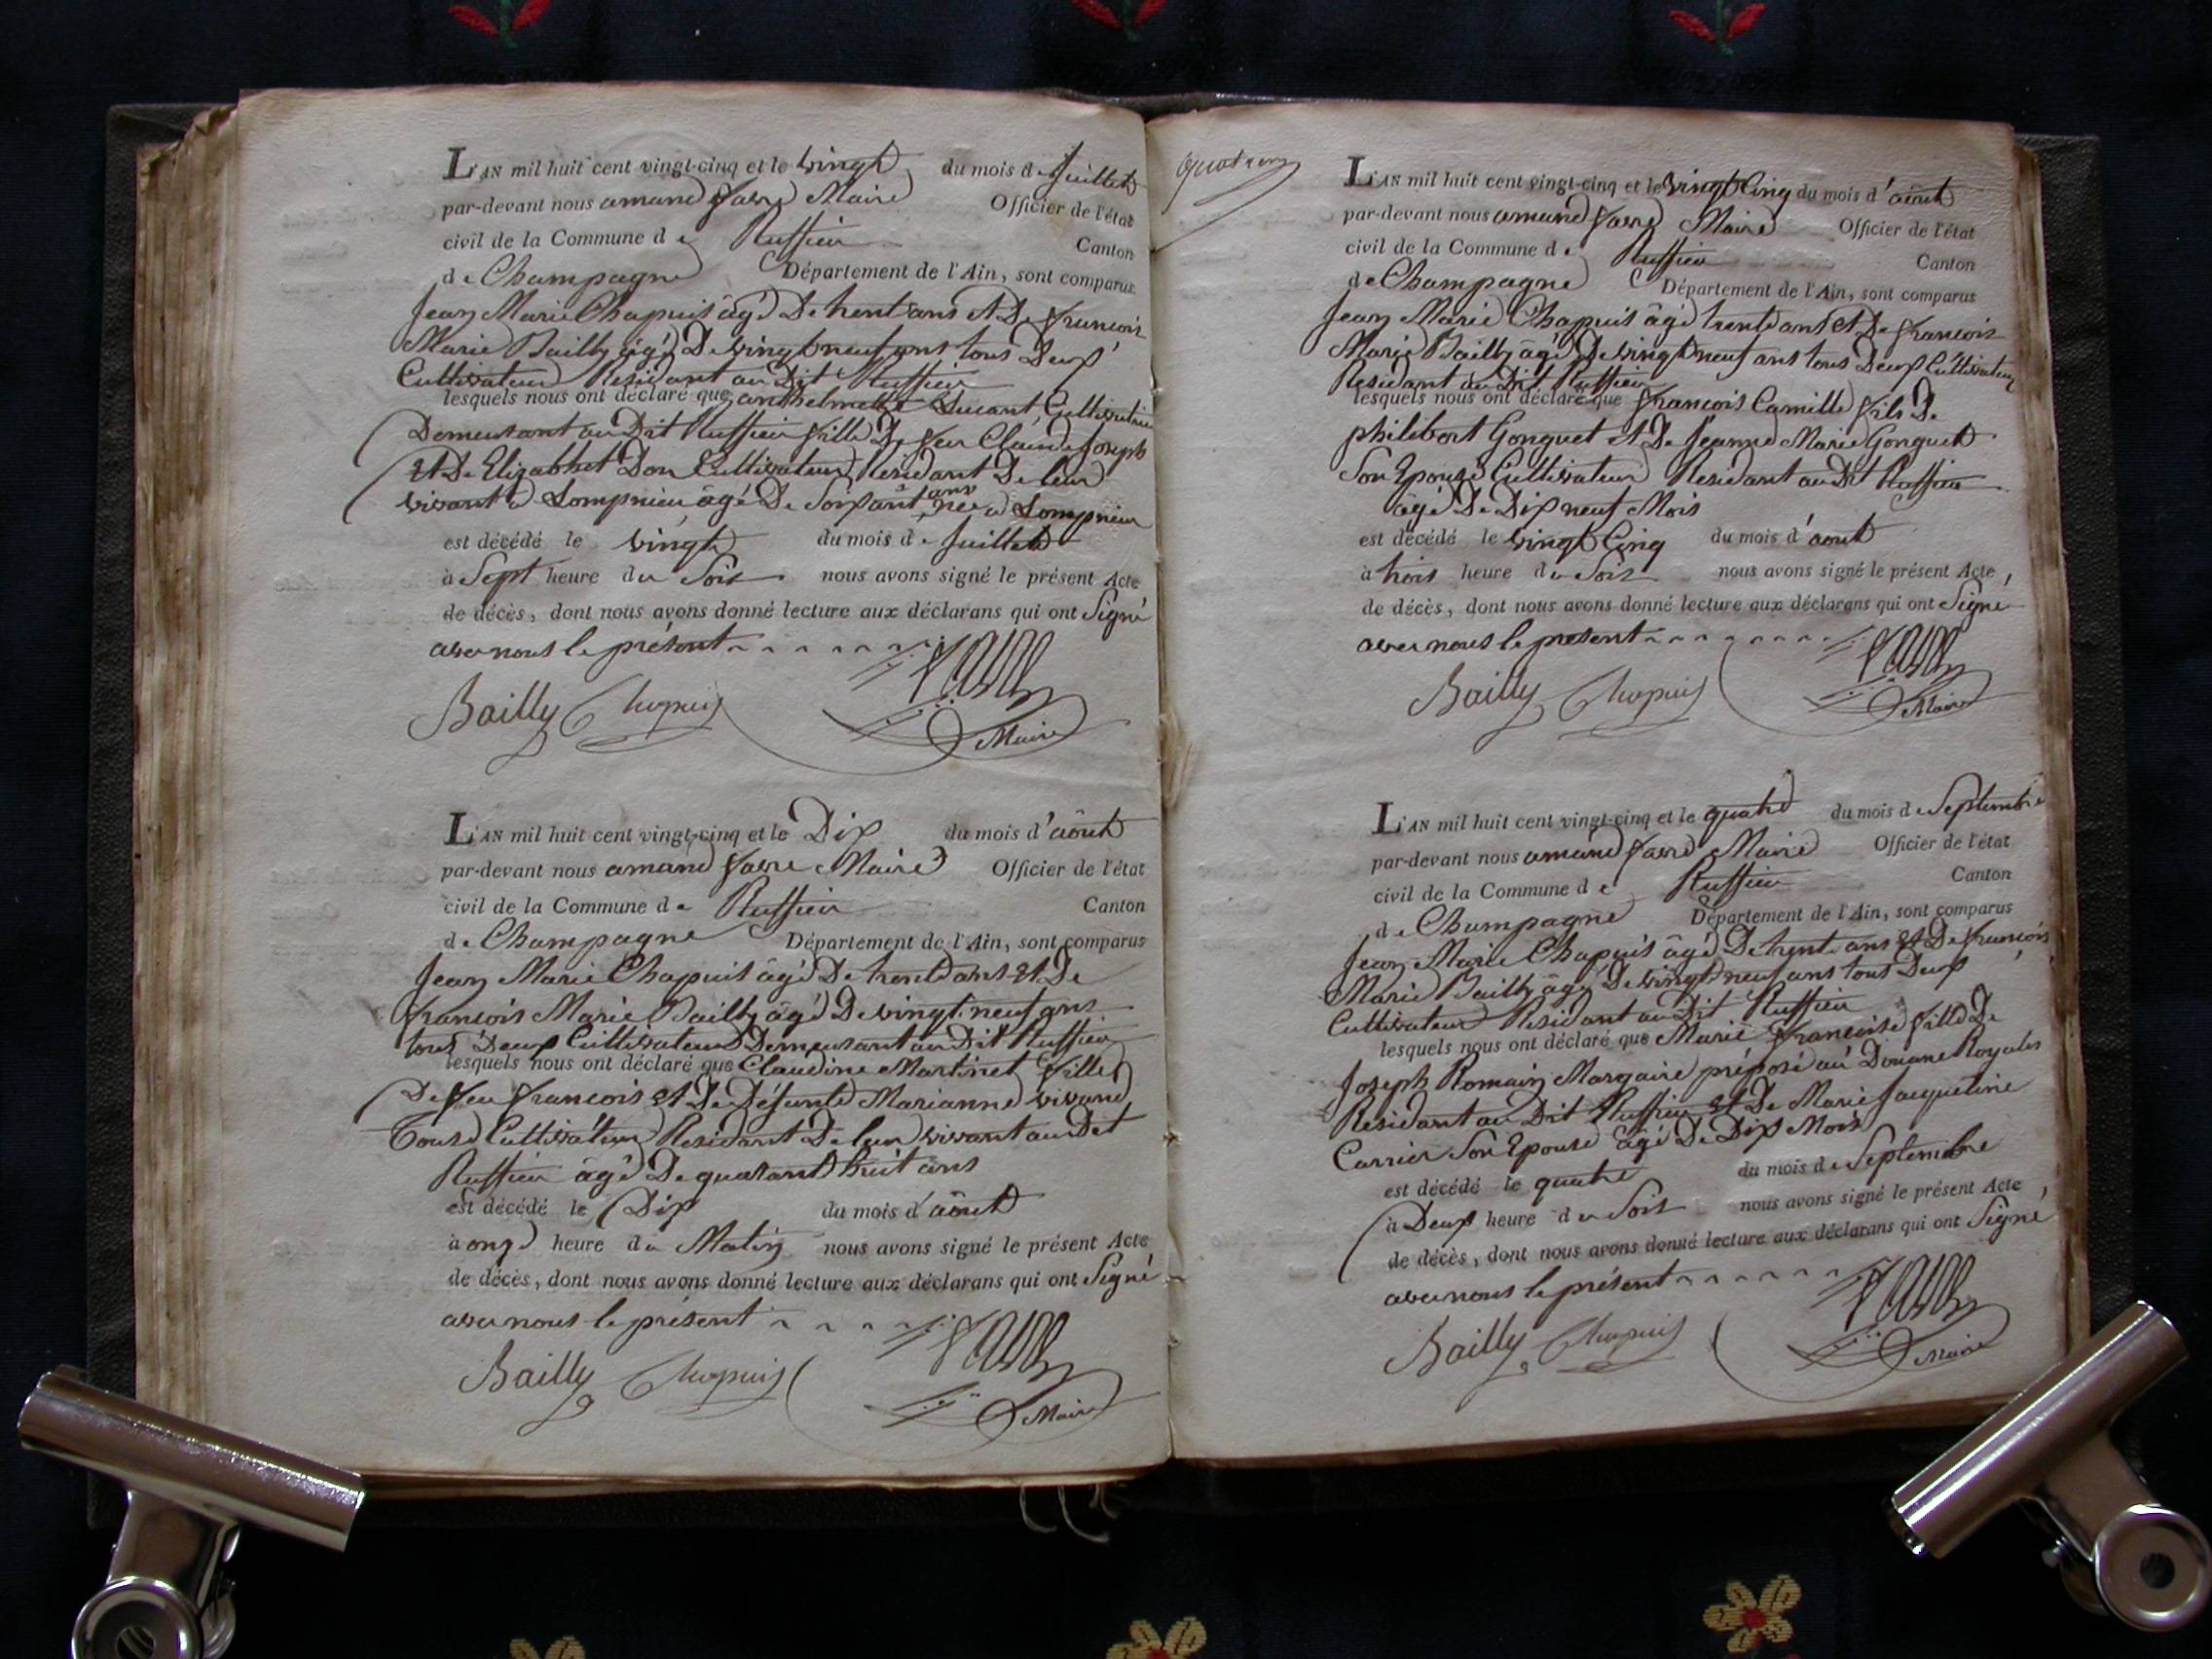 L'AN mil huit cent vingt-cinq et le vingt du mois de Juillet
par-devant nous amand favre Maire Officier de l'état
civil de la Commune de Ruffieu Canton
de Champagne Département de l'Ain, sont comparus
Jean Marie Chapuis âgé De trent ans et De francois
Marie Bailly âgé De vingt neuf ans tous Deux
Cultivateur Residant au Dit Ruffieu
lesquels nous ont déclaré que anthelmette Ducant Cultivatrice
Demeurant au Dit Ruffieu fille De feu Claude Joseph
et De Elizabhet Don Cultivateur Residant De leur
vivant a Lompnieu âgé De Soixant ans née a Lompnieu
est décédé le vingt du mois de Juillet
à Sept heure du Soir nous avons signé le présent Acte
de décès, dont nous avons donné lecture aux déclarans qui ont Signé
avec nous le présent
Bailly Chapuis favre
Maire
L'AN mil huit cent vingt-cinq et le Dix du mois d'aôut
par-devant nous amand favre Maire Officier de l'état
civil de la Commune de Ruffieu Canton
de Champagne Département de l'Ain, sont comparus
Jean Marie Chapuis âgé De trent ans et De
francois Marie Bailly âgé De vingt neuf ans
tous Deux Cultivateur Demeurant au Dit Ruffieu
lesquels nous ont déclaré que Claudine Martinet fille
De feu francois et De Défunte Marianne vivand
Tous Cultivateur Residant De leur vivant au Dit
Ruffieu âgé De quarant huit ans
est décédé le Dix du mois d'aôut
à onze heure du Matin nous avons signé le présent Acte
de décès, dont nous avons donné lecture aux déclarans qui ont Signé
avec nous le présent
Bailly Chapuis favre
Maire
L'AN mil huit cent vingt-cinq et le vingt Cinq du mois d'aôut
par-devant nous amand favre Maire Officier de l'état
civil de la Commune de Ruffieu Canton
de Champagne Département de l'Ain, sont comparus
Jean Marie Chapuis âgé trent ans et De francois
Marie Bailly âgé De vingt neuf ans tous Deux Cultivateur
Residant au Dit Ruffieu
lesquels nous ont déclaré que francois Camille fils De
philibert Gonguet et De Jeanne Marie Gonguet
Son Epouse Cultivateur Residant au Dit Ruffieu
âgé De Dix neuf Mois
est décédé le vingt Cinq du mois d'aout
à trois heure du Soir nous avons signé le présent Acte,
de décès, dont nous avons donné lecture aux déclarans qui ont Signé
avec nous le present
Bailly Chapuis favre
Maire
L'AN mil huit cent vingt-cinq et le quatre du mois de Septembre
par-devant nous amand favre Maire Officier de l'état
civil de la Commune de Ruffieu Canton
de Champagne Département de l'Ain, sont comparus
Jean Marie Chapuis âgé De trent ans et De francois
Marie Bailly âgé De vingt neuf ans tous Deux
Cultivateur Residant au Dit Ruffieu
lesquels nous ont déclaré que Marie francoise fille De
Joseph Romain Margaire préposé au Douane Royales
Residant au Dit Ruffieu et De Marie Jacqueline
Carrier Son Epouse âgé De Dix Mois
est décédé le quatre du mois de Septembre
à Deux heure du Soir nous avons signé le présent Acte,
de décès, dont nous avons donné lecture aux déclarans qui ont Signé
avec nous le présent
Bailly Chapuis favre
Maire